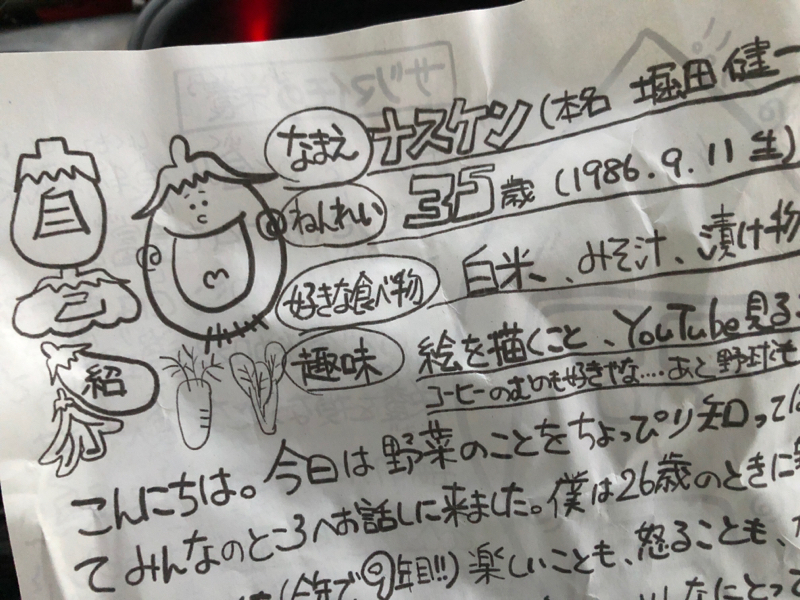 自己紹介
なまえ ナスケン(本名 堀田健一
ねんれい 35歳 (1986.9.11生)
好きな食べ物 白米、みそ汁、漬け物
趣味 絵を描くこと、YouTube見る
コーヒーのむのも好きやな....あと野球も
こんにちは。今日は野菜のことをちょっぴり知っては
てみんなのところへお話しに来ました。僕は26歳のときに
(今年で⑨年目!!)楽しいことも、怒ることも、
なにとって